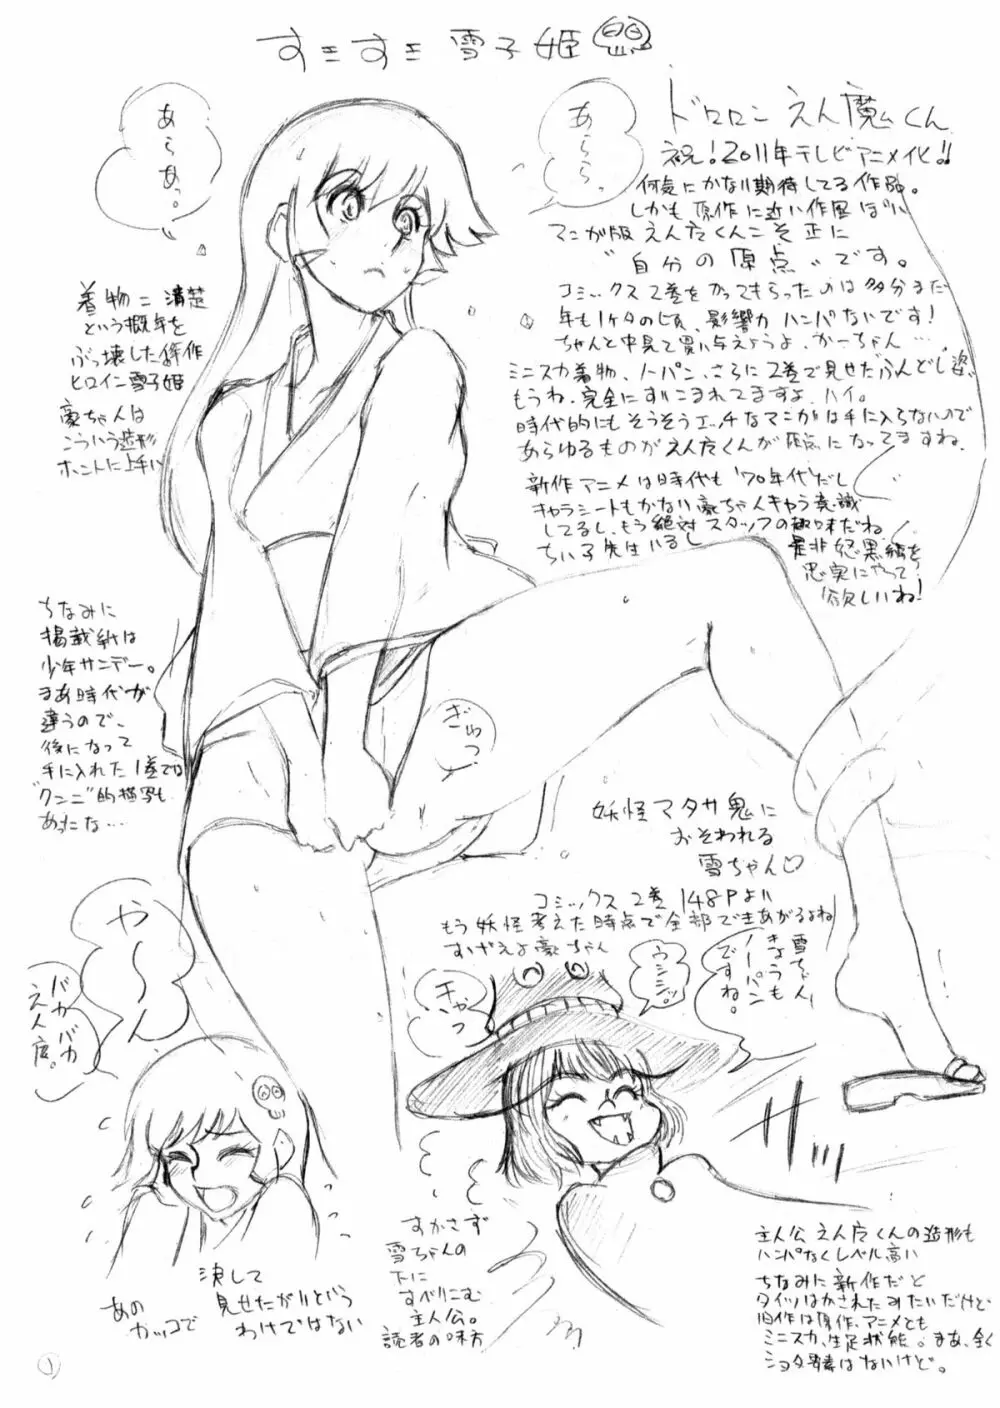 すきすき雪子姫
あらあっ。
あらら
ドロロンえん魔くん
祝!2011年テレビアニメ化!!
何気にかなり期待してる作品。
しかも原作に近い作風ぽい
マンガ版えん魔くんこそ正に
"自分の原点"です。
コミックス2巻をかってもらったのは多分まだ
年も1ケタの頃、影響力ハンパないです!
ちゃんと中見て買い与えようよ、かーちゃん…
ミニスカ着物、ノーパン、さらに2巻で見せたふんどし姿、
もうね、完全にすりこまれてますよ、ハイ。
時代的にもそうそうエッチなマンガは手に入らないので
あらゆるものがえん魔くんが原点になってますね。
新作アニメは時代も'70年代だし
キャラシートもかない豪ちゃんキャラ意識
してるし、もう絶対スタッフの趣味だね
ちい子先生いるし
是非怒黒編を
忠実にやって
欲しいね!
着物=清楚
という概年を
ぶっ壊した傑作
ヒロイン雪子姫
豪ちゃんは
こういう造形
ホントに上手い
ちなみに
掲載紙は
少年サンデー。
まあ時代が
違うので、
後になって
手に入れた1巻では
"クンニ"的描写も
あったな…
ぎゅっ
妖怪マタサ鬼に
おそわれる
雪ちゃん♡
コミックス2巻148Pより
もう妖怪考えた時点で全部できあがるよね
すげえよ豪ちゃん
雪ちゃん、
きょうも
ノーパン
ですね。
ウシシッ。
きゃっ
や〜ん
バカバカ
えん魔。
すかさず
雪ちゃんの
下に
すべりこむ
主人公。
読者の味方
あの
カッコで
決して
見せたがりという
わけではない
主人公えん魔くんの造形も
ハンパなくレベル高い
ちなみに新作だと
タイツはかされたみたいだけど
旧作は原作、アニメとも
ミニスカ、生足状態。まあ、全く
ショタ要素はないけど。
1